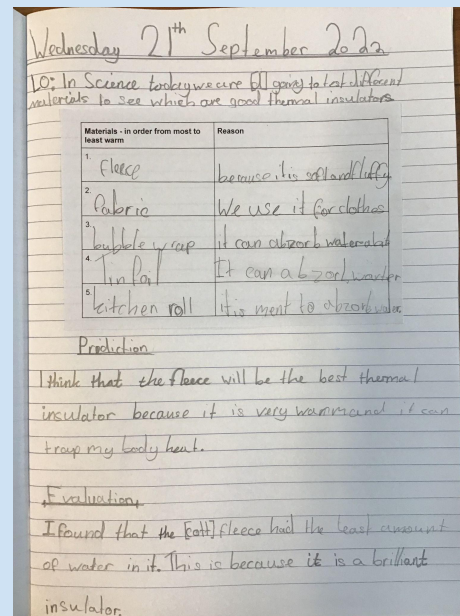 Wednesday 21th September 2022
LO: In Science today we are [] going to test different
materials to see which are good thermal insulators
Materials - in order from most to least warm
Reason
1. fleece
because it is soft and fluffy
2. fabric
We use it for clothes
3. bubble wrap
it can abzorb
4. Tin foil
It can abzorb warter
5. kitchen roll
it is ment to abzorb water
Prediction
I think that the fleece will be the best thermal
insulator because it is very warm and it can
trap my body heat.
Evaluation
I found that the [cott] fleece had the least amount
of water in it. This is because it is a brilliant
insulator.